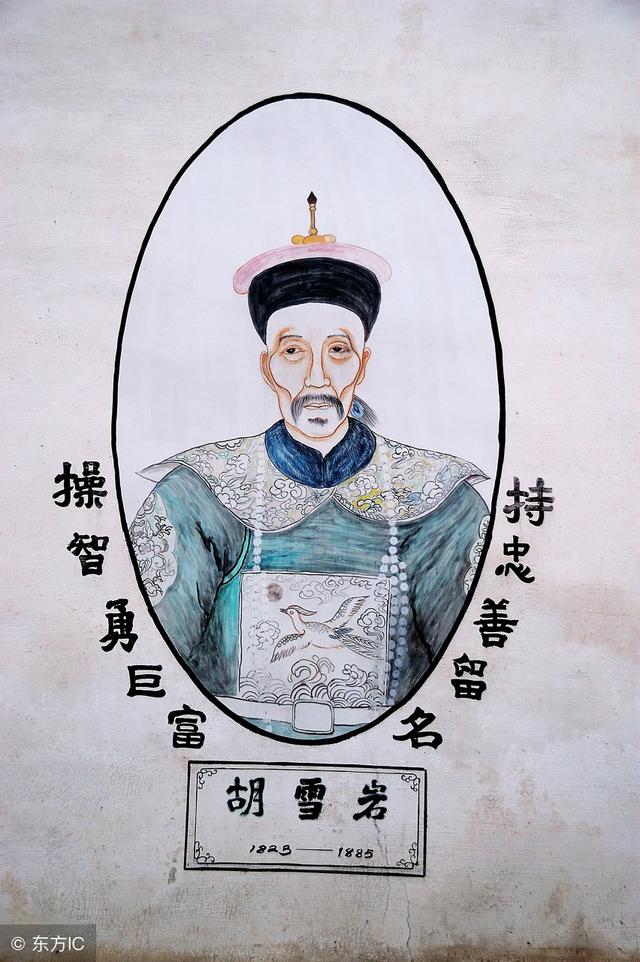 操智勇巨富
持忠善留名
胡雪岩
1823——1885
© 东方IC